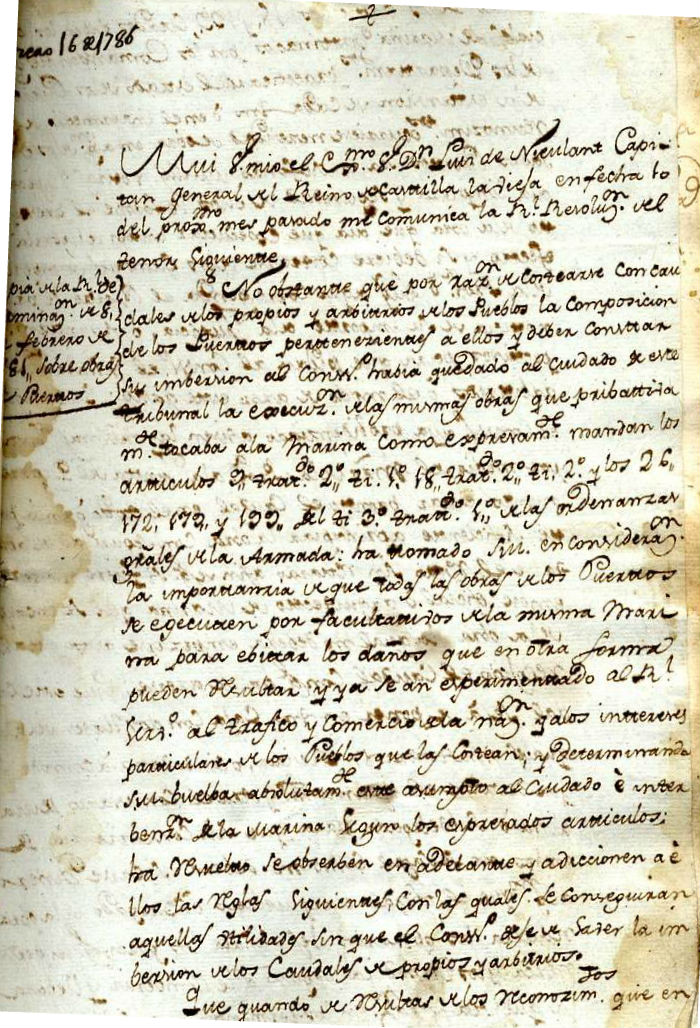 2
16 de 1786
Mui S.r mio el Exmo S.r D.n Luis de Niculant Capi-
tan General del Reino de Castilla la Vieja en fecha 10
del proxmo mes pasado me Comunica la R.l Resoluz.n del
tenor Siguiente,
No obstante que por raz.on de Costearse Con cau
dales de los propios y arbitrios de los Pueblos la Composicion
de los Puertos pertenezientes a ellos y deber Constar
su imbersion al Cons.o havia quedado al Cuidado de este
tribunal la execuz.on de las mismas obras que pribattiva
m.te tocaba a la Marina Como expresam.te mandan los
articulos 9,, trat.do 2.o ti. 1.o 18, trat.do 2.o ti. 2.o y los 26,,
172, 173, y 199,, del ti 3.o trat.do 1.o de las ordenanzas
grãles de la Armada: ha tomado S.M. en considera.on
la importanzia de que todas las obras de los Puertos
se egecuten por facultattivos de la misma Mari
na para ebitar los daños que en otra forma
pueden Resultar y ya se an experimentado al R.l
Serv.o al trafico y Comercio de la naz.on y a los intereses
particulares de los Pueblos que las Costean; y determinando
S.M. buelba absolutam.te este asumpto al Cuidado è inter
benz.n de la Marina Segun los expresados articulos;
ha Resuelto se obserben en adelante y adiccionen a è
llos las Reglas Siguientes, Con las quales se Conseguiran
aquellas utilidades sin que el Cons.o deje de Saber la im
bersion de los Caudales de propios y arbitrios.
Que quando de Resultas de los Reconozim.tos que en
pia de la R.l de
minaz.on de 8,
febrero de
81,, sobre obras
Puertos